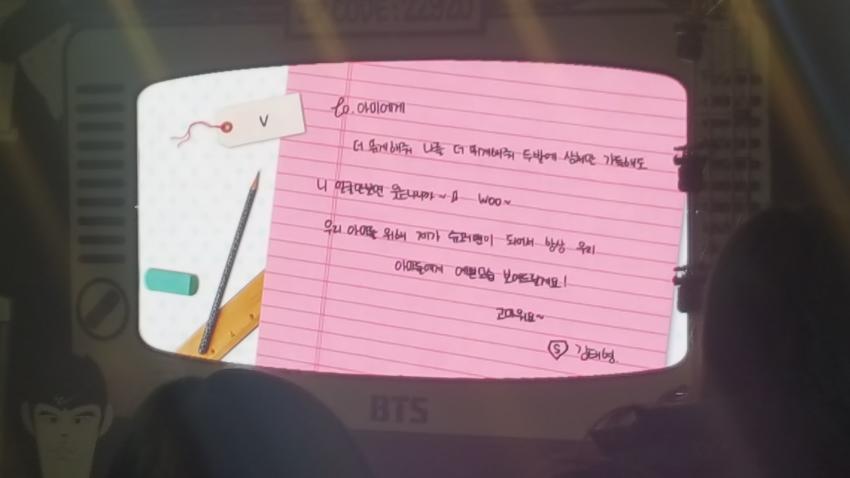 CODE:22920
V
to. 아이에게
더 웃게해줘 나를 더 미치게해줘 두발에 상처만 가득해도
니 얼굴만보면 웃으니까~♪ woo~
우리 아이들 위해 제가 슈퍼맨이 되어서 항상 우리
아이들에게 예쁜모습 보여드릴게요!
고마워요~
S 김태형
BTS